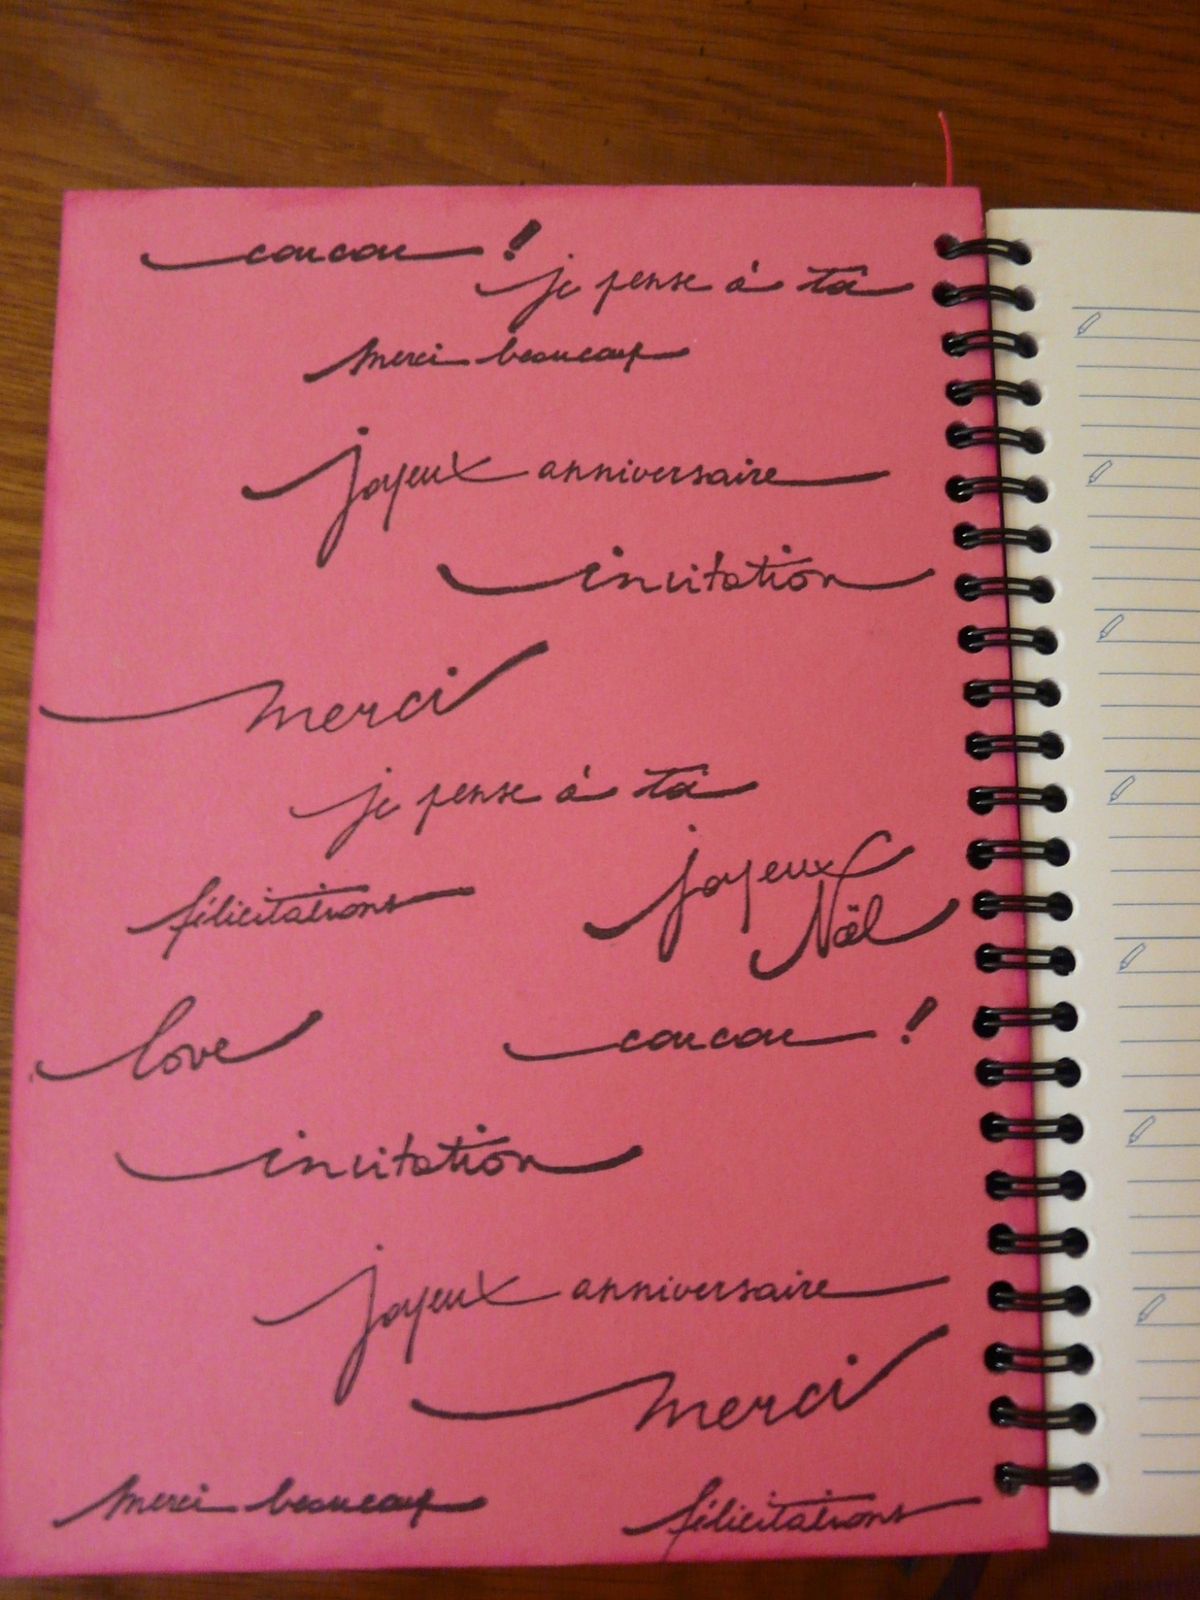 coucou !
je pense à toi
merci beaucoup
joyeux anniversaire
invitation
merci
je pense à toi
félicitations
joyeux
Noël
love
coucou !
invitation
joyeux anniversaire
merci
merci beaucoup
félicitations